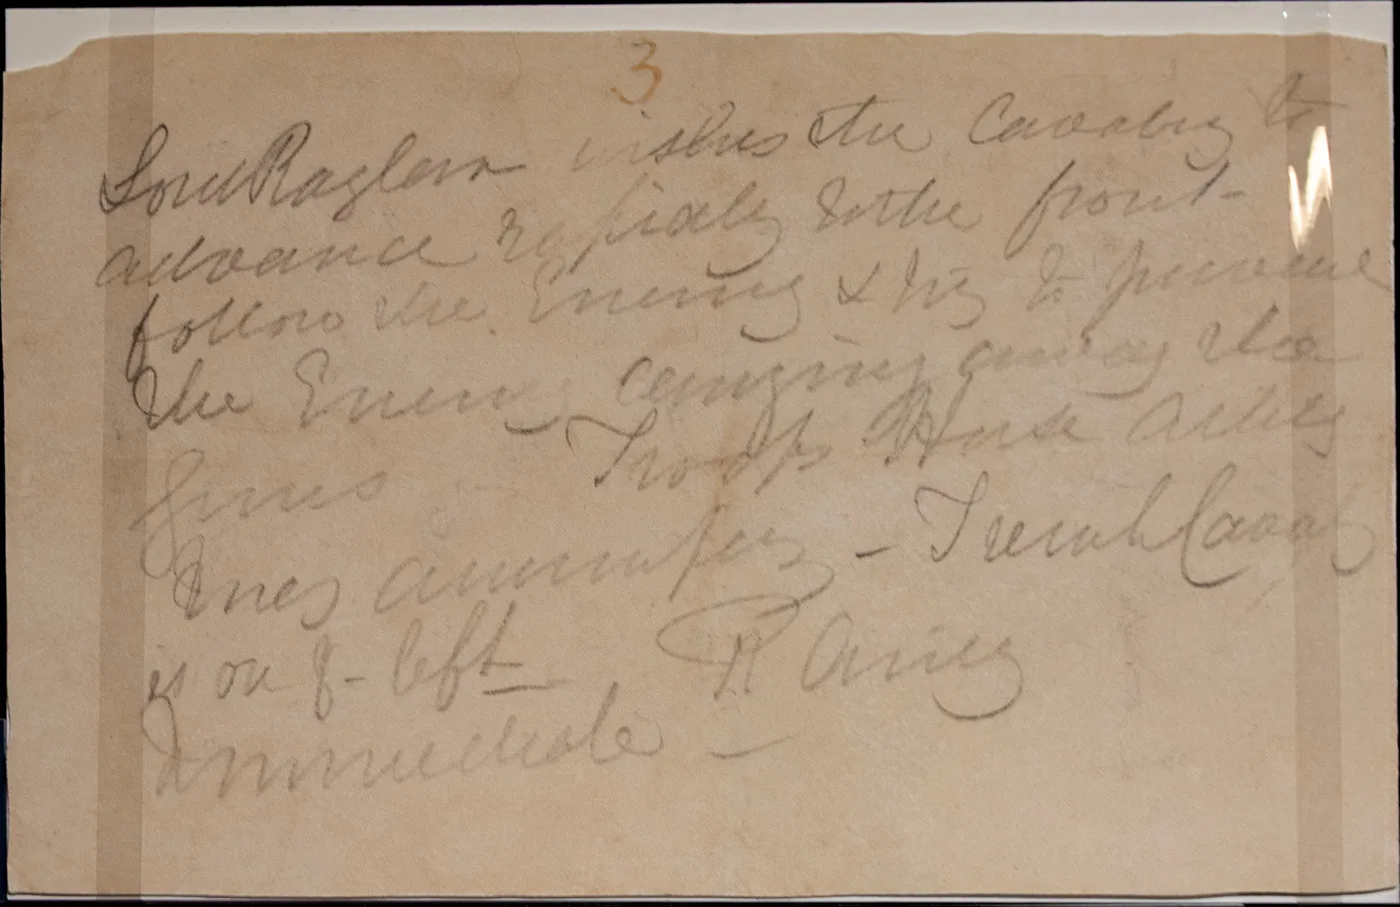 3
Lord Raglan wishes the Cavalry to
advance rapidly to the front
follow the Enemy & try to prevent
the Enemy carrying away the
guns Troop Horse Artillery
may accompany – French Cavalry
is on yr left
R Airey
Immediate –